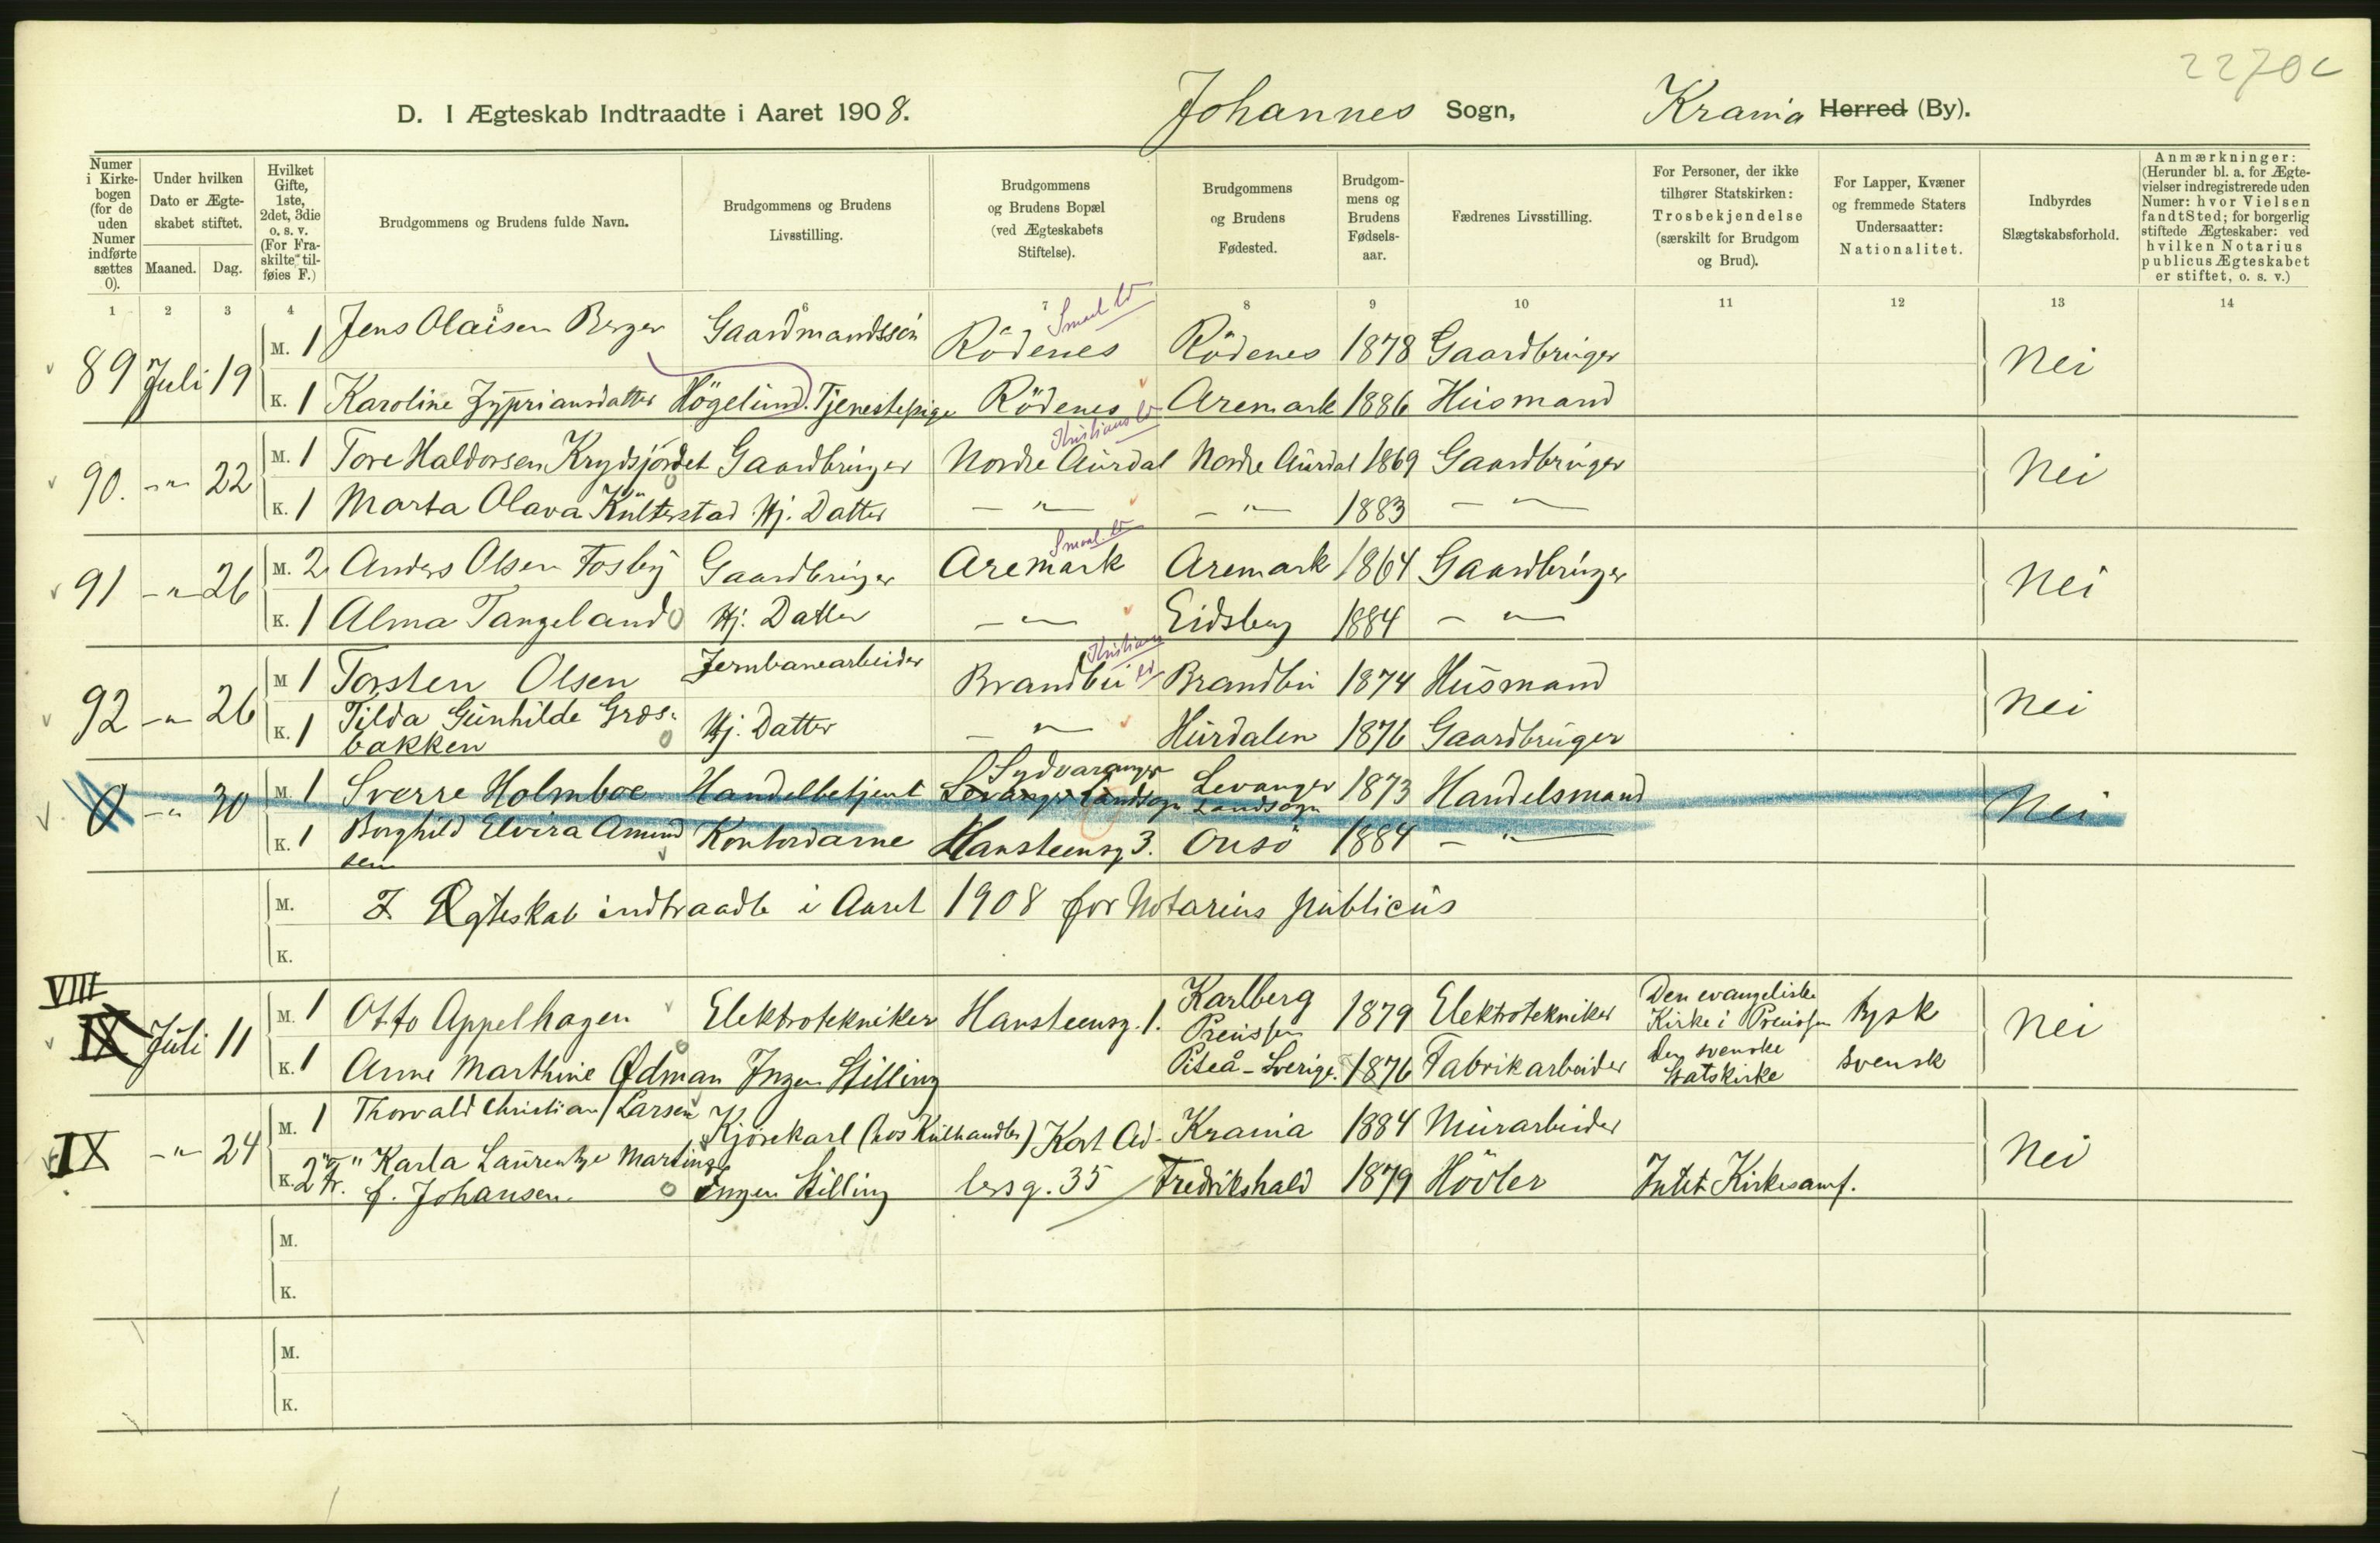 2270c
D. I Ægteskab Indtraadte i Aaret 1908. Johannes Sogn, Krania Herred (By).
Numer i Kirkebogen (for de uden Numer indførte sættes 0).
Under hvilken Dato er Ægteskabet stiftet.
Maaned. Dag.
Hvilket Gifte, 1ste, 2det, 3die o. s. v. (For Fraskilte tilføies F.)
Brudgommens og Brudens fulde Navn.
Brudgommens og Brudens Livsstilling.
Brudgommens og Brudens Bopæl (ved Ægteskabets Stiftelse).
Brudgommens og Brudens Fødested.
Brudgommens og Brudens Fødselsaar.
Fædrenes Livsstilling.
For Personer, der ikke tilhører Statskirken: Trosbekjendelse (særskilt for Brudgom og Brud).
For Lapper, Kvæner og fremmede Staters Undersaatter: Nationalitet.
Indbyrdes Slægtskabsforhold.
Anmærkninger: (Herunder bl. a. for Ægtevielser indregistrerede uden Numer: hvor Vielsen fandt Sted; for borgerlig stiftede Ægteskaber: ved hvilken Notarius publicus Ægteskabet er stiftet, o. s. v.)
1 2 3 4 5 6 7 8 9 10 11 12 13 14
89 Juli 19 M. 1 Jens Olaisen Berger Gaardmandssön Rödenes Rödenes 1878 Gaardbruger Nei
K. 1 Karoline Zypriansdatter Högelund. Tjenestepige Rödenes Aremark 1886 Husmand
90. -"- 22 M. 1 Tore Haldorsen Krydsjordet Gaardbruger Nordre Aurdal Nordre Aurdal 1869 Gaardbruger Nei
K. 1 Marta Olava Kulterstad Hj. Datter -"- -"- 1883 -"-
91 -"- 26 M. 2 Anders Olsen Fosby Gaardbruger Aremark Aremark 1864 Gaardbruger Nei
K. 1 Alma Tangeland Hj. Datter -"- Eidsberg 1884 -"-
92 -"- 26 M 1 Torsten Olsen Jernbanearbeider Brandbu Brandbu 1874 Husmand Nei
K. 1 Tilda Gunhilde Grosbakken Hj. Datter -"- Hurdalen 1876 Gaardbruger
0 -"- 30 M. 1 Sverre Holmboe Handelbetjent Sydvaranger Levanger Landsogn Levanger Landsogn 1873 Handelsmand Nei
K. 1 Borghild Elvira Amundsen Kontordame Hansteensg. 3. Onsö 1884 -"-
M. I Ægteskab indtraadte i Aaret 1908 for Notarius publicus
K.
VIII
IX Juli 11 M. 1 Otto Appelhagen Elektrotekniker Hansteensg. 1. Karlberg Preussen 1879 Elektrotekniker Den evangeliske Kirke i Preussen tysk Nei
K. 1 Anne Marthine Ödman Ingen Stilling Piteå - Sverige. 1876 Fabrikarbeider Den svenske Statskirke svensk
IX -"- 24 M. 1 Thorvald Christian Larsen Kjörekarl (hos Kulhandler) Kort Ad- Krania 1884 Murarbeider Nei
K. 2 Fr. Karla Laurentze Martinsen f. Johansen. Ingen Stilling lersg. 35 Fredrikshald 1879 Hövler Intet Kirkesamf.
M.
K.
M.
K.